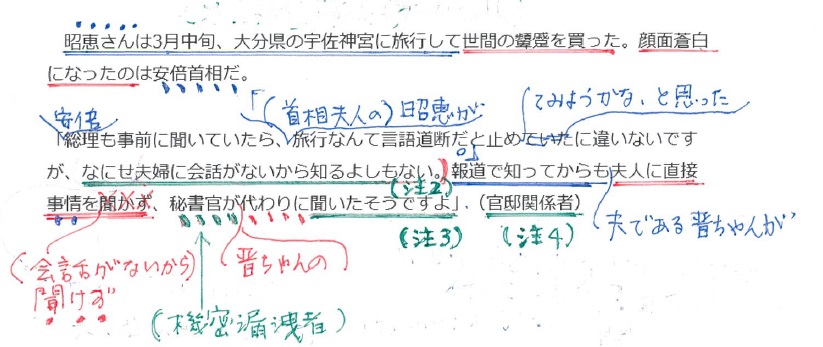 昭恵さんは3月中旬、大分県の宇佐神宮に旅行して世間の顰蹙を買った。顔面蒼白
になったのは安倍首相だ。
安倍
「(首相夫人の)昭恵が
てみようかな、と思った
「総理も事前に聞いていたら、旅行なんて言語道断だと止めていたに違いないです
が、なにせ夫婦に会話がないから知るよしもない。報道で知ってからも夫人に直接
(注2)
事情を聞かず、秘書官が代わりに聞いたそうですよ」(官邸関係者)
(注3)
(注4)
夫である晋ちゃんが
(会話がないから)
聞けず
晋ちゃんの
(機密漏洩者)